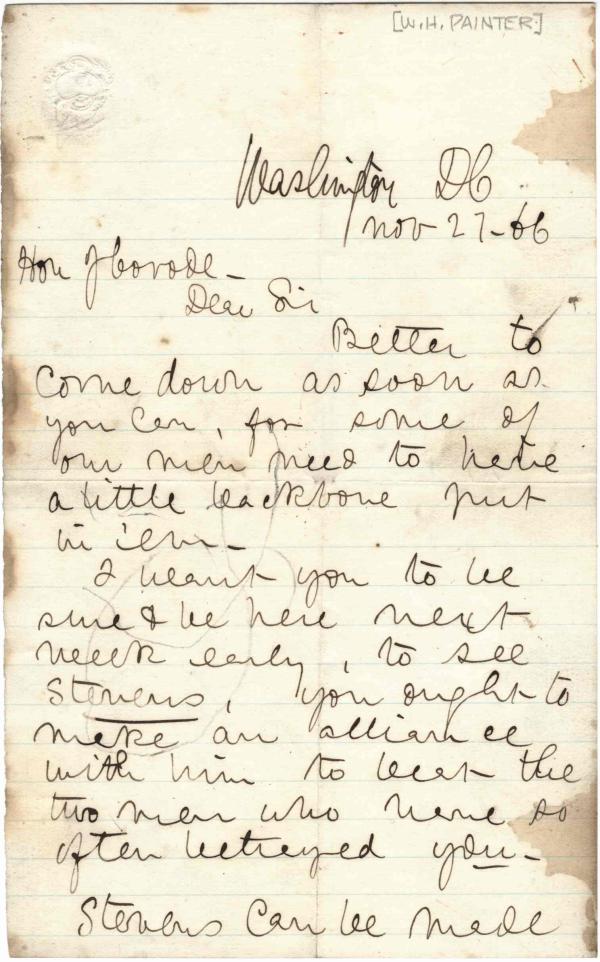 [W.H. PAINTER]
Washington DC
Nov 27-66
Hon J Covode-
Dear Sir
Better to
come down as soon as
you can, for some of
our men need to have
a little backbone put
in 'em-
I want you to be
sure & be here next
week early, to see
Stevens, you ought to
make an alliance
with him to beat the
two men who have so
often betrayed you-
Stevens can be made